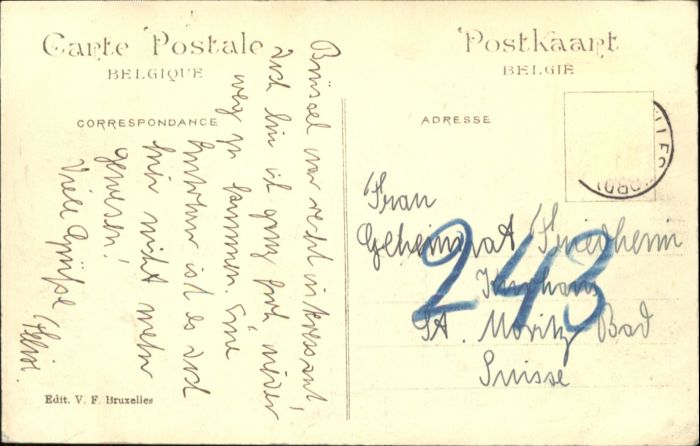 Carte Postale
BELGIQUE
Postkaart
BELGIË
CORRESPONDANCE
ADRESSE
Brüssel war recht interessant,
doch bin ich ganz froh, wieder
weg zu kommen. Eine
ist es doch
hier nicht mehr
gewesen!
Viele Grüße
Frau
Geheimrat Friedheim
243
St. Moritz Bad
Suisse
Edit. V. F. Bruxelles